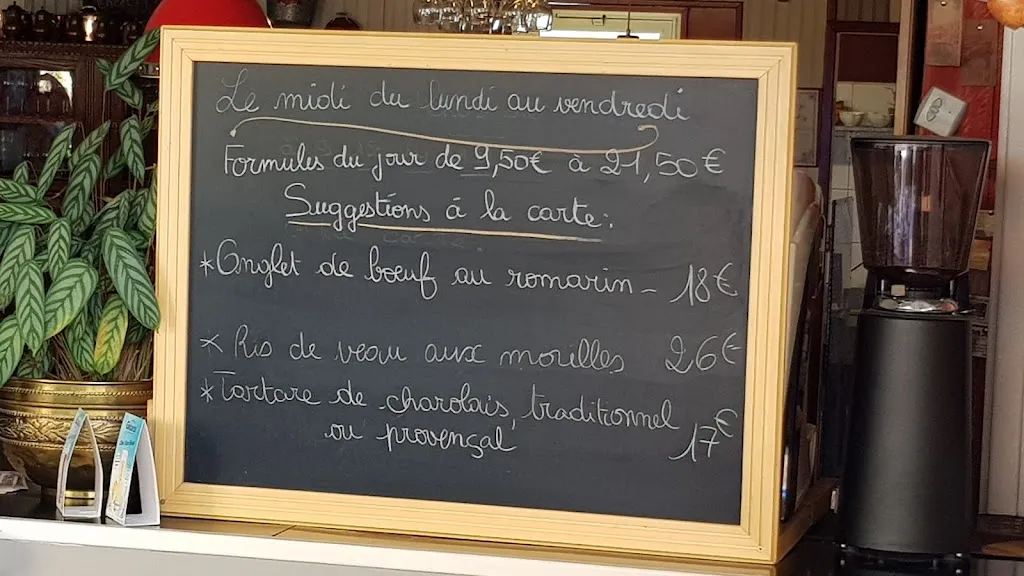 Le midi du lundi au vendredi
Formules du jour de 9,50€ à 21,50€
Suggestions à la carte:
*Onglet de bœuf au romarin - 18€
* Ris de veau aux morilles 26€
*Tartare de charolais, traditionnel
ou provençal 17€